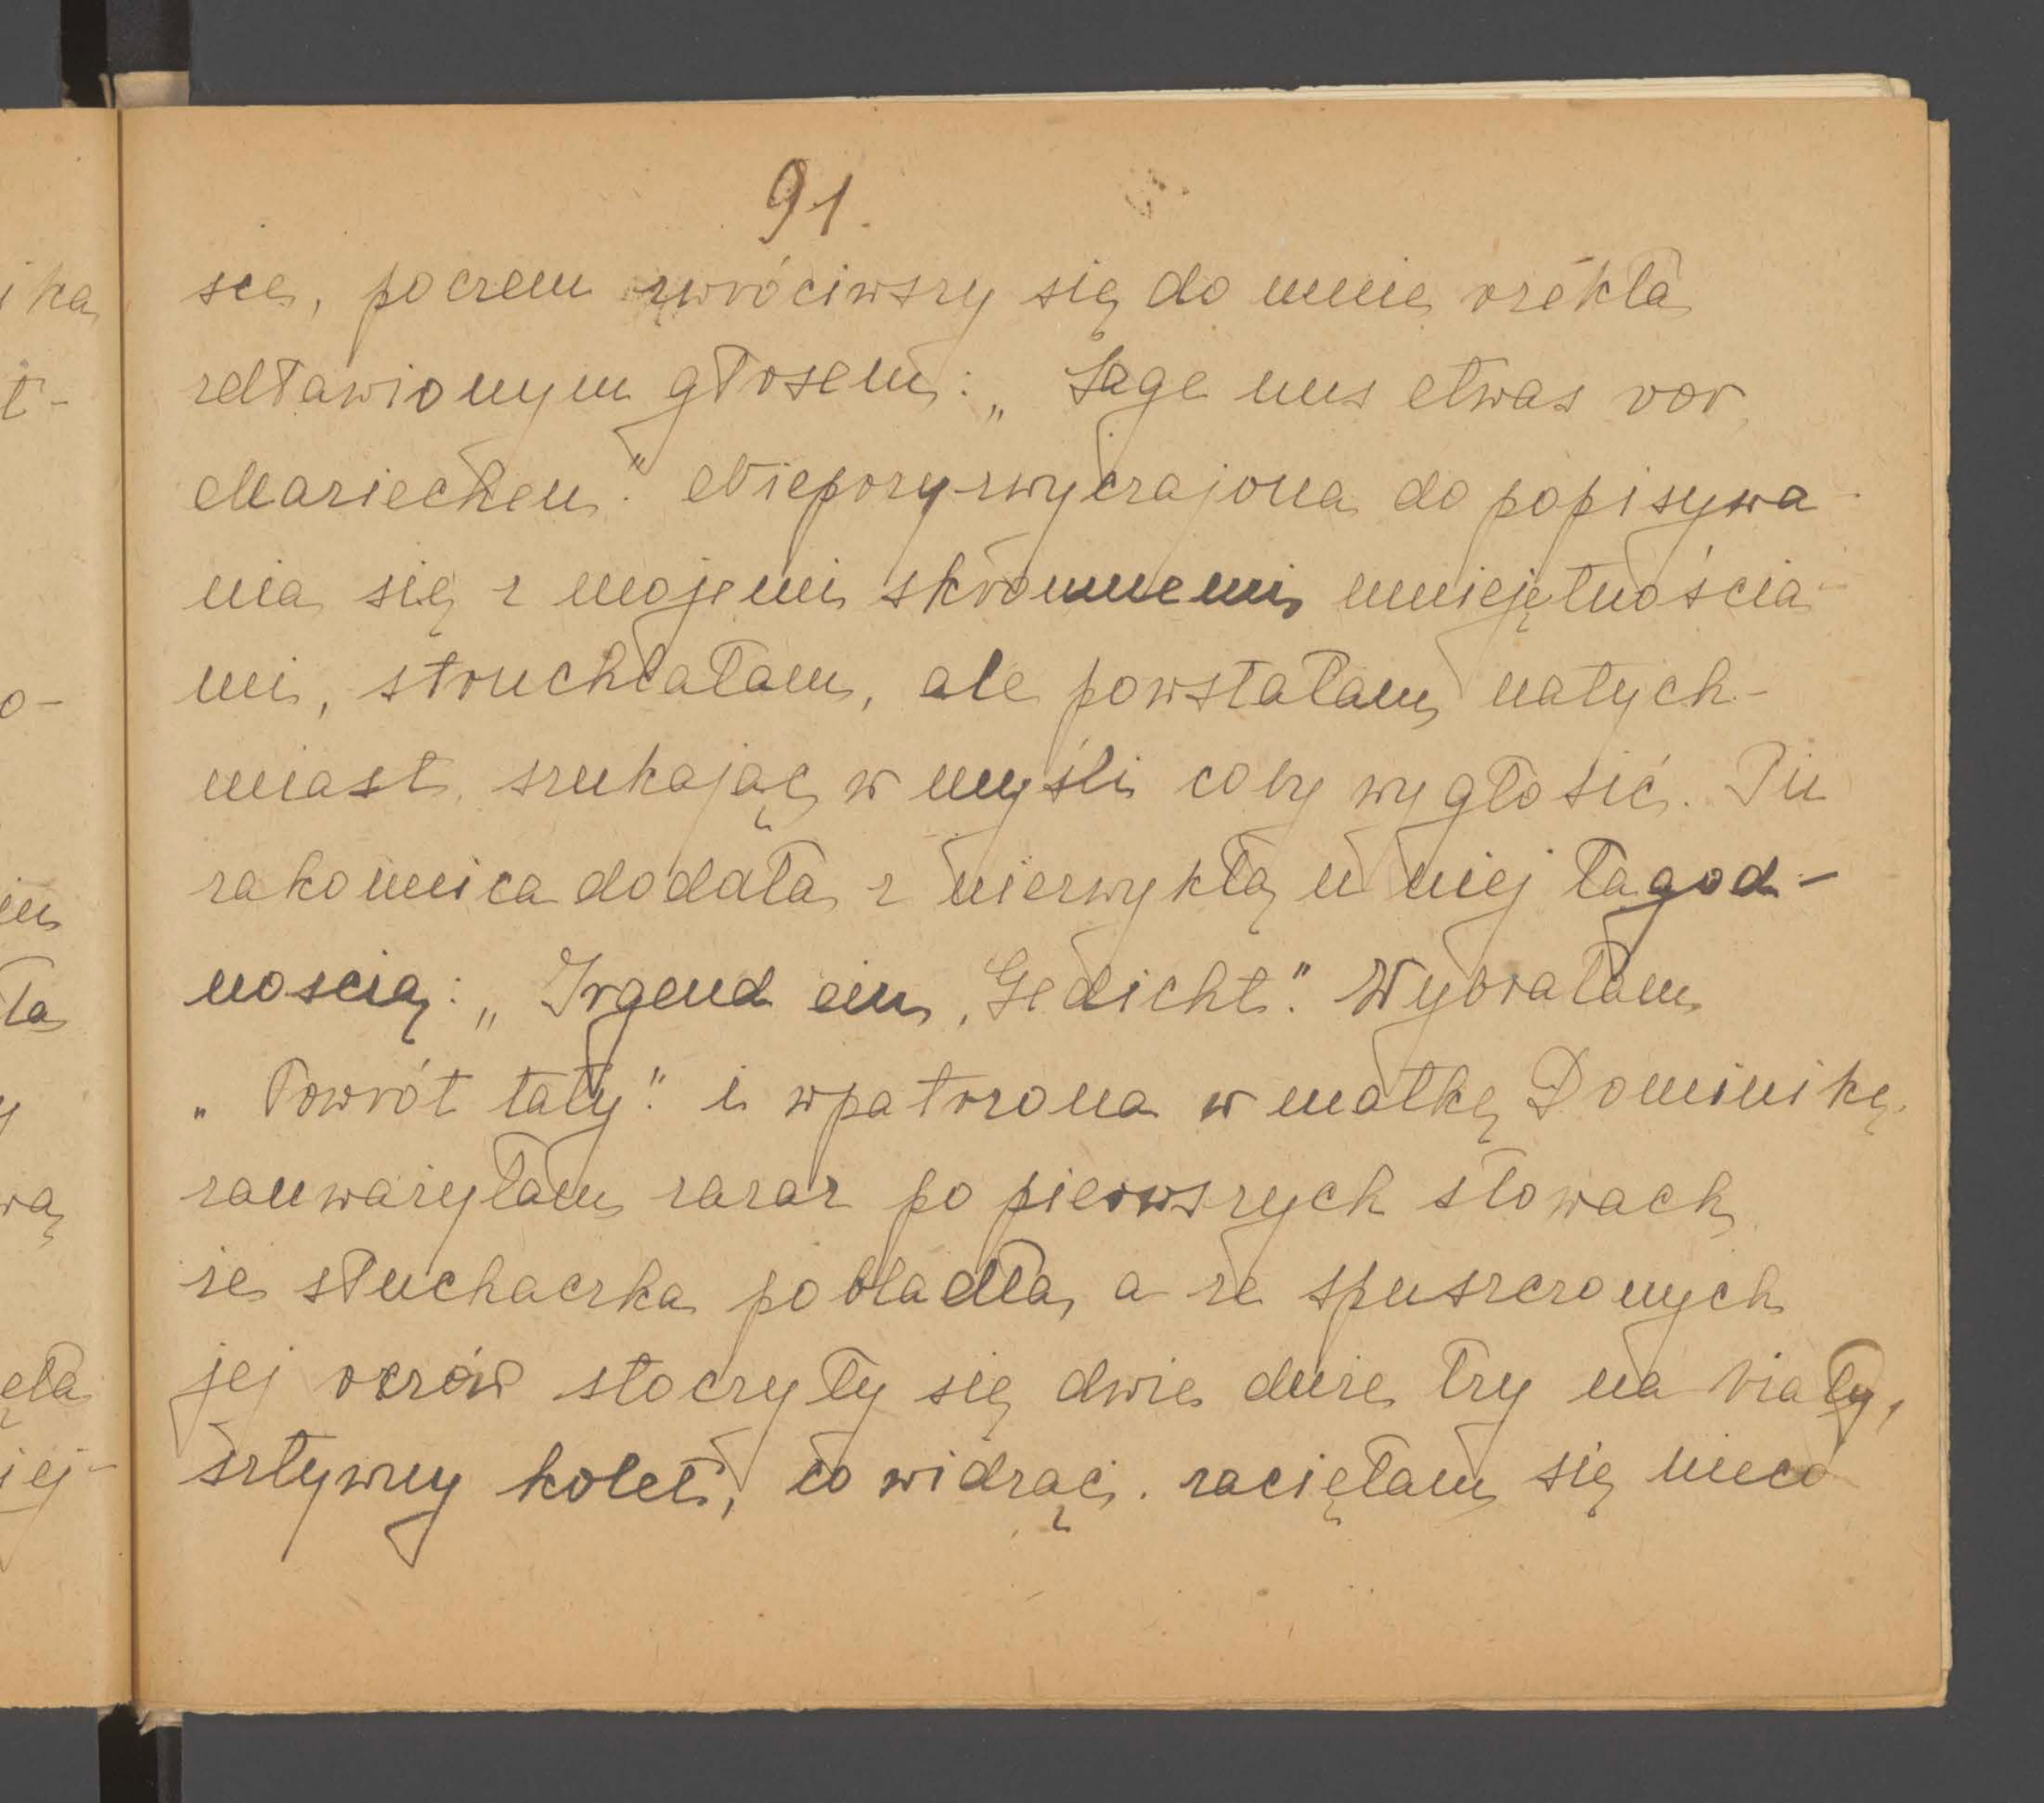 91.
sce, poczem zwróciwszy się do mnie rzekła
zdławionym głosem: „Sage uns etwas vor,
Mariechen." Nieprzyzwyczajona do popisywa-
nia się z mojemi skromnemi umiejętnościa-
mi, struchlałam, ale powstałam natych-
miast, szukając w myśli coby wygłosić. Tu
zakonnica dodała z niezwykłą u niej łagod-
nością: „Irgend ein Gedicht." Wybrałam
„Powrót taty" i wpatrzona w matkę Dominikę
zauważyłam zaraz po pierwszych słowach,
że słuchaczka pobladła, a ze spuszczonych
jej oczów stoczyły się dwie duże łzy na biały,
sztywny kolet, co widząc, zacięłam się nieco